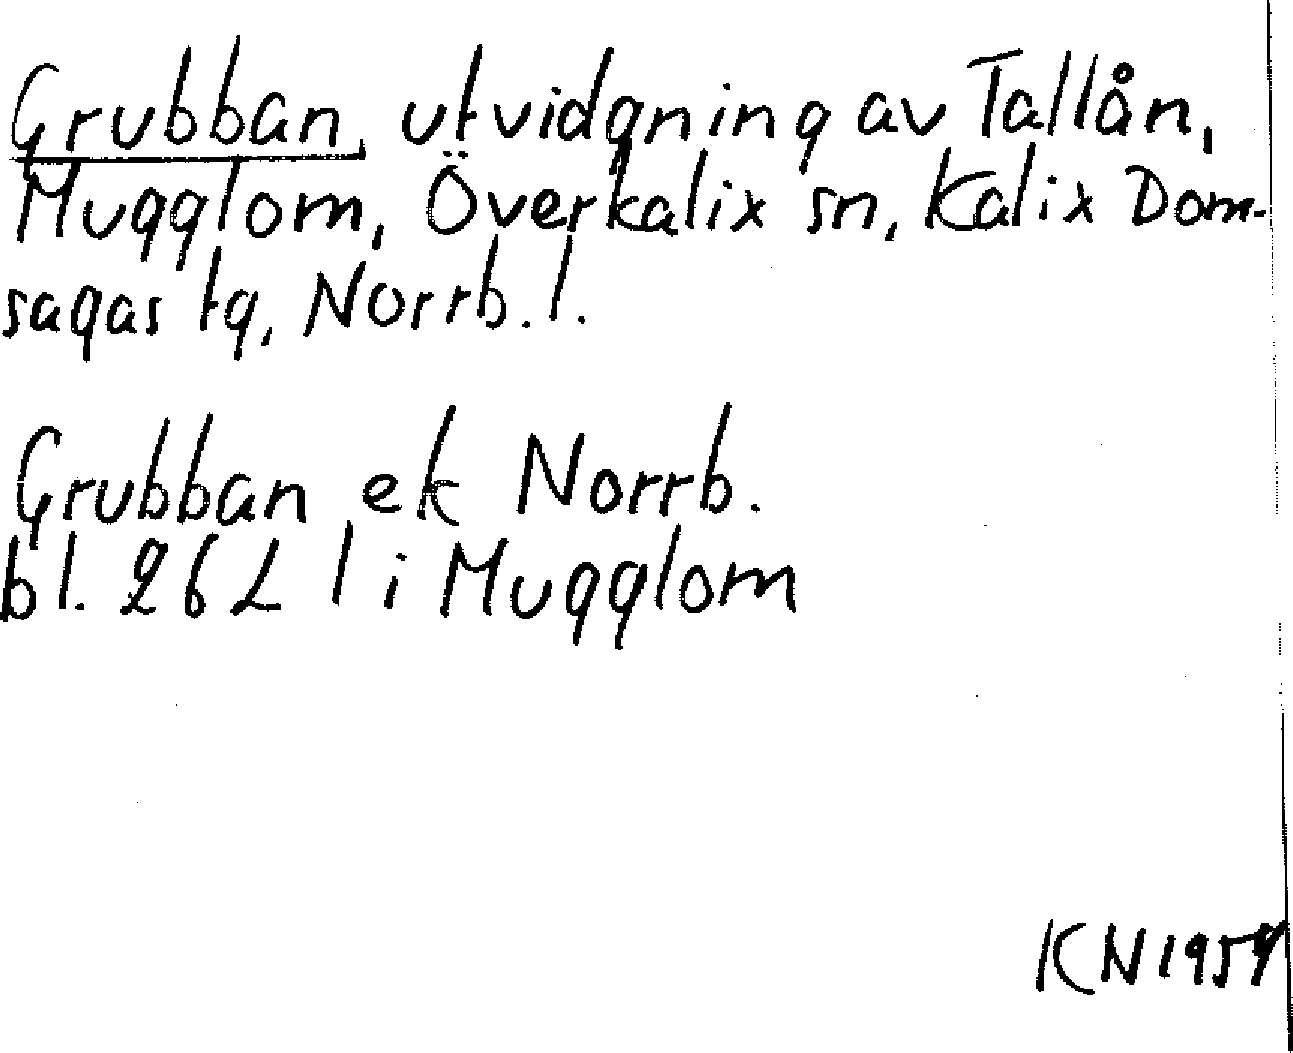 Grubban, utvidgning av Tallån,
Mugglom, Överkalix sn, Kalix Dom-
sagas tg, Norrb. l.
Grubban ek Norrb.
bl. 262 l i Mugglom
KN